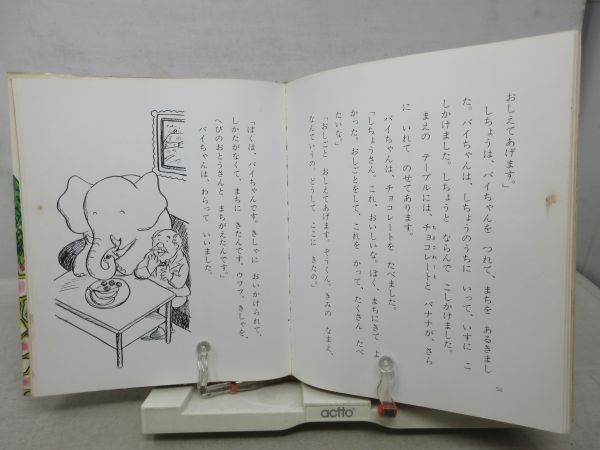 おしえてあげます。」
しちょうは、バイちゃんを つれて、まちを あるきまし
た。バイちゃんは、しちょうのうちに いって、いすに こ
しかけました。しちょうと ならんで こしかけました。
まえの テーブルには、チョコレートと バナナが、さら
に いれて のせてあります。
バイちゃんは、チョコレートを たべました。
「しちょうさん。これ、おいしいな。ぼく、まちにきて よ
かった。おしごとをして、これを かって、たくさん たべ
たいな。」
「おしごと おしえてあげます。ぞうくん。きみの なまえ、
なんていうの。どうして ここに きたの。」
56
「ぼくは、バイちゃんです。きしゃに おいかけられて、
しかたがなくて、まちに きたんです。ウフフ。きしゃを、
へびのおとうさんと まちがえたんです。」
バイちゃんは、わらって いいました。
actto